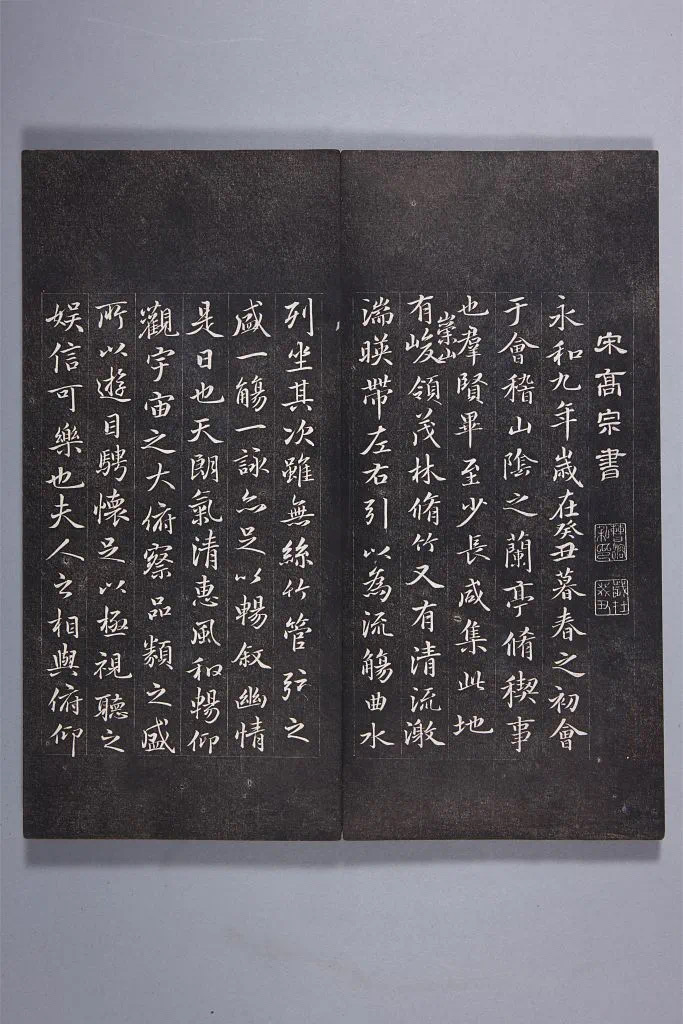 宋高宗書
永和九年歲在癸丑暮春之初會
于會稽山陰之蘭亭脩稧事
也羣賢畢至少長咸集此地
有崇山峻領茂林脩竹又有清流激
湍暎帶左右引以為流觴曲水
列坐其次雖無絲竹管弦之
盛一觴一詠亦足以暢敘幽情
是日也天朗氣清惠風和暢仰
觀宇宙之大俯察品類之盛
所以遊目騁懷足以極視聽之
娛信可樂也夫人之相與俯仰